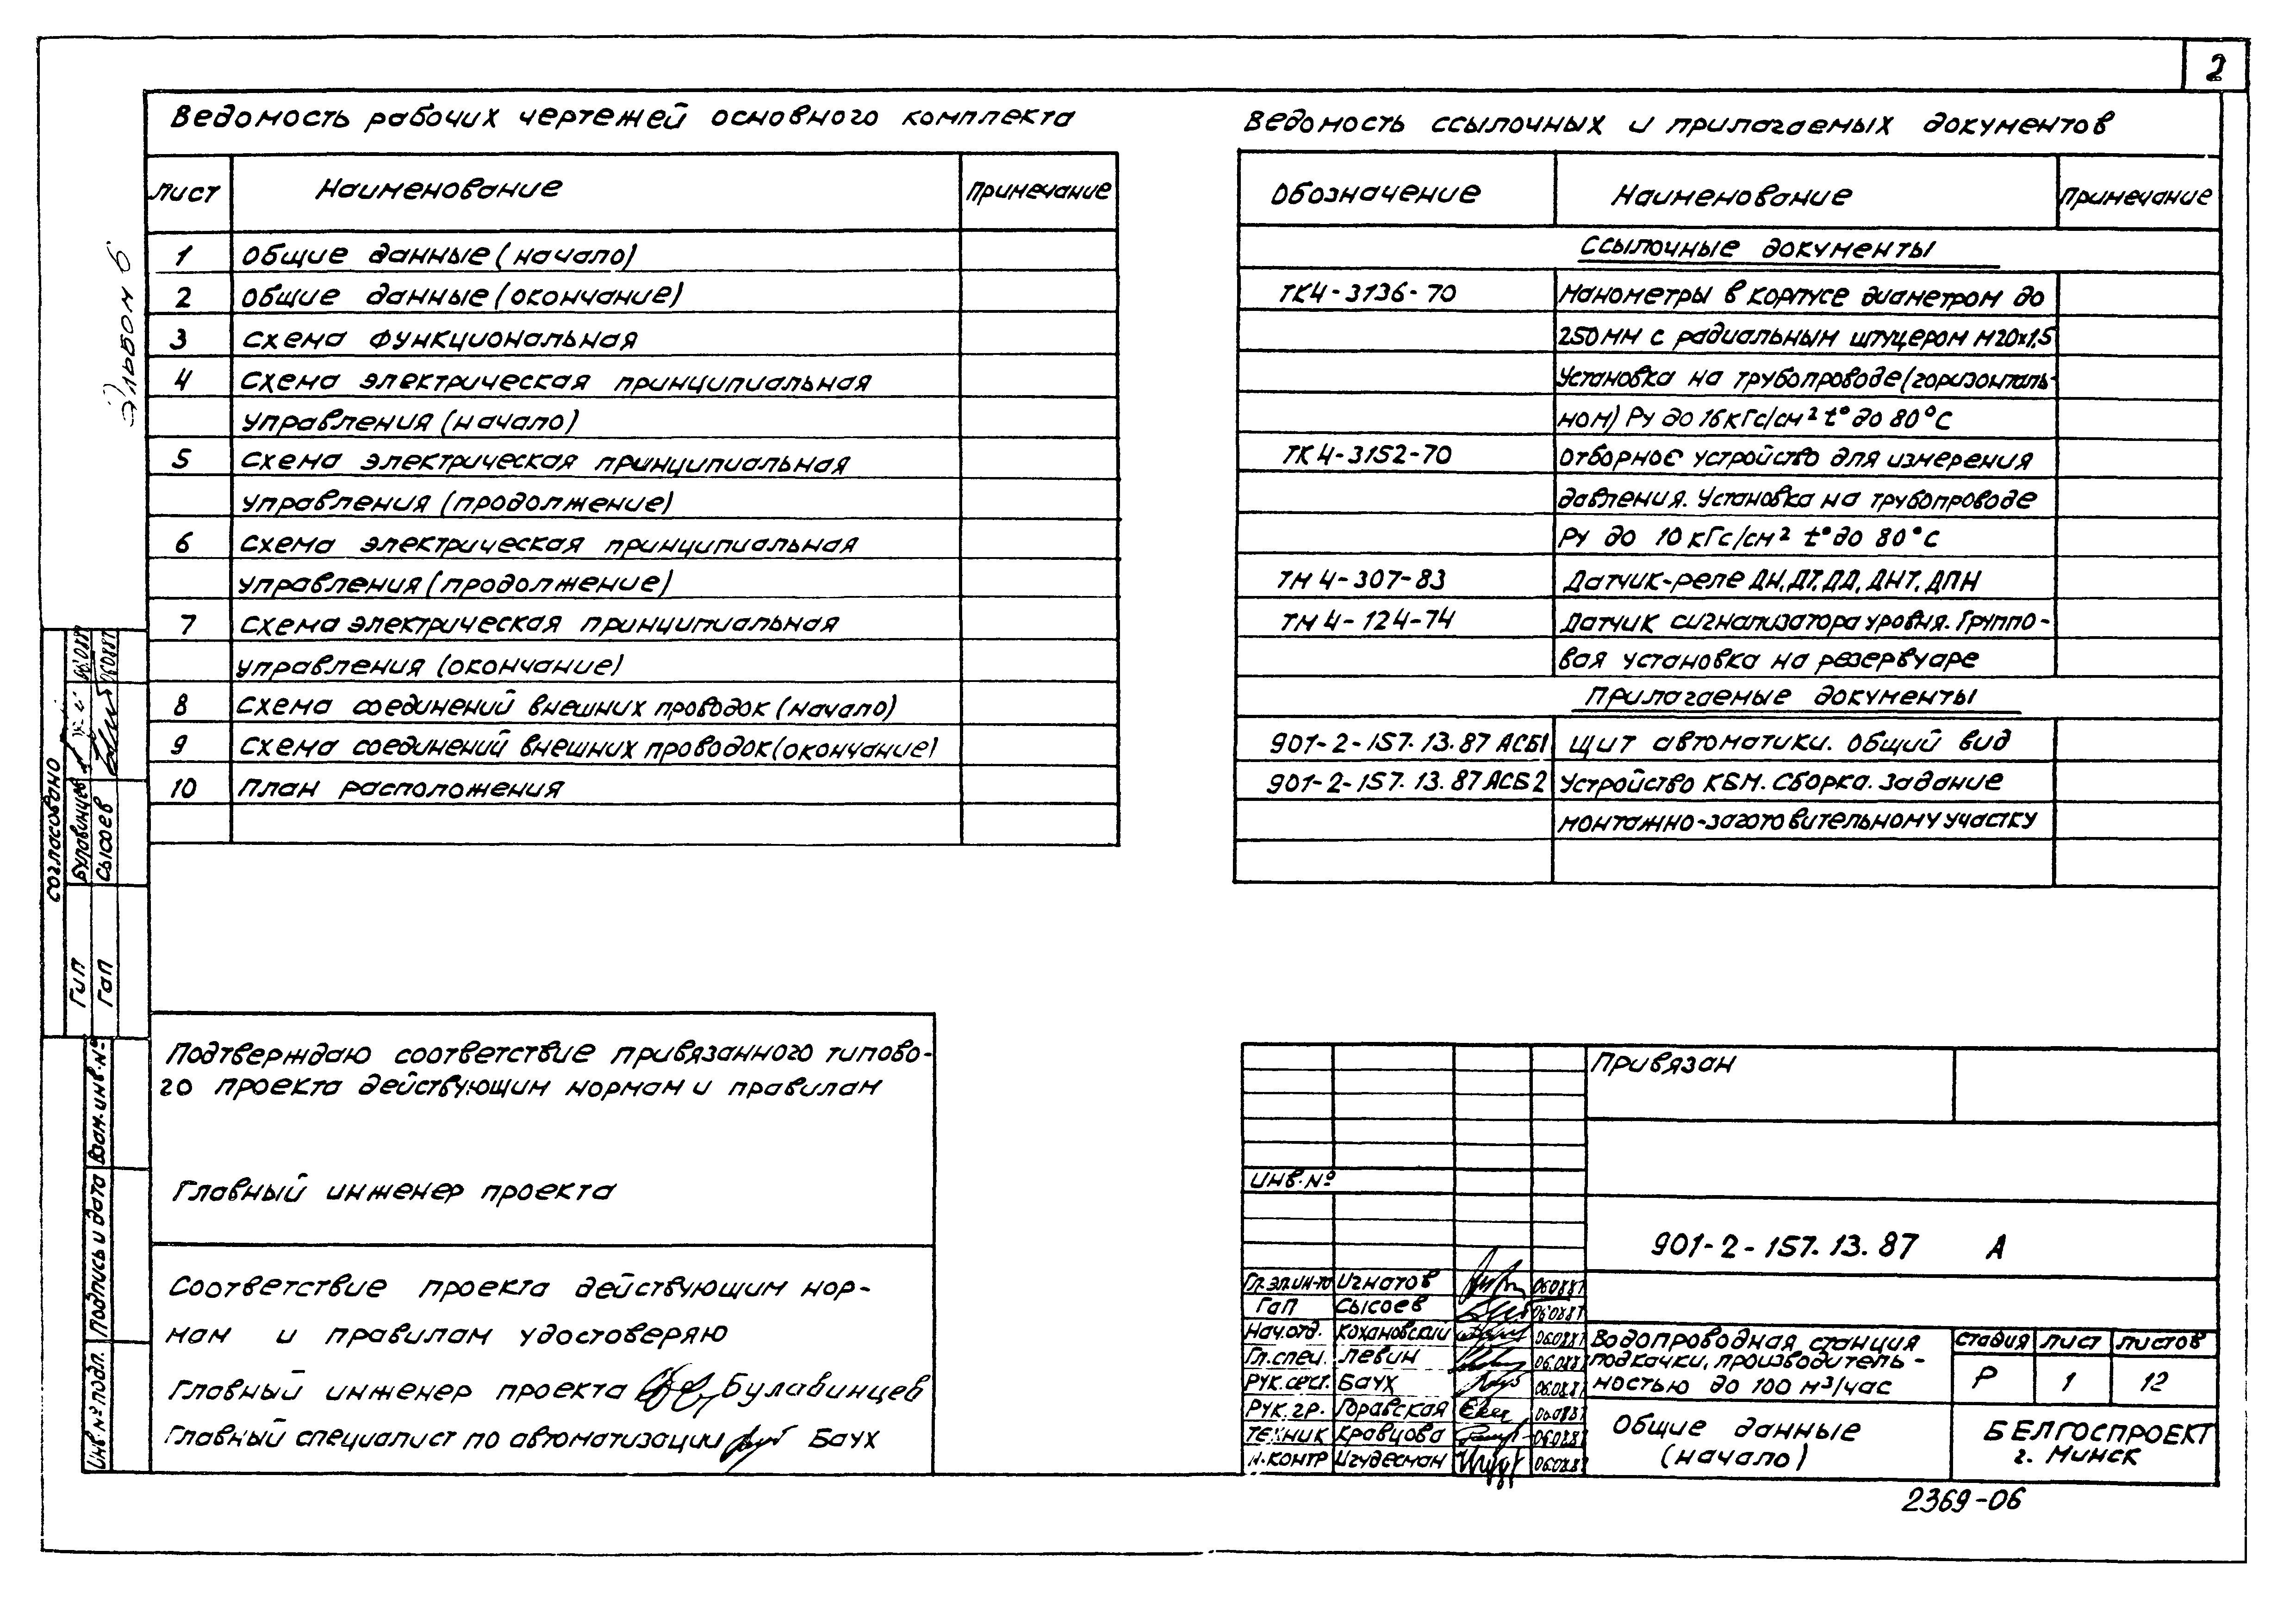 2
Ведомость рабочих чертежей основного комплекта
Лист Наименование Примечание
1 Общие данные (начало)
2 Общие данные (окончание)
3 Схема функциональная
4 Схема электрическая принципиальная
управления (начало)
5 Схема электрическая принципиальная
управления (продолжение)
6 Схема электрическая принципиальная
управления (продолжение)
7 Схема электрическая принципиальная
управления (окончание)
8 Схема соединений внешних проводок (начало)
9 Схема соединений внешних проводок (окончание)
10 План расположения
Ведомость ссылочных и прилагаемых документов
Обозначение Наименование Примечание
Ссылочные документы
ТК4-3136-70 Манометры в корпусе диаметром до
250мм с радиальным штуцером М20х1,5
Установка на трубопроводе (горизонталь-
ном) Ру до 16кГс/см² t° до 80°С
ТК4-3152-70 Отборное устройство для измерения
давления. Установка на трубопроводе
Ру до 10 кГс/см² t° до 80°С
ТМ4-307-83 Датчик-реле ДН, ДТ, ДД, ДНТ, ДПН
ТМ4-124-74 Датчик сигнализатора уровня. Группо-
вая установка на резервуаре
Прилагаемые документы
901-2-157.13.87 АСБ1 Щит автоматики. Общий вид
901-2-157.13.87 АСБ2 Устройство КБМ. Сборка. Задание
монтажно-заготовительному участку
Альбом 6
Согласовано
ГИП Булавинцев 06.08.87
ГАП Сысоев 06.08.87
Взам. инв. №
Подпись и дата
Инв. № подл.
Подтверждаю соответствие привязанного типово-
го проекта действующим нормам и правилам
Главный инженер проекта
Соответствие проекта действующим нор-
мам и правилам удостоверяю
Главный инженер проекта Булавинцев
Главный специалист по автоматизации Баух
Привязан
Инв. №
901-2-157.13.87 А
Гл.эл.ин-та Игнатов 06.08.87
ГАП Сысоев 06.08.87
Нач.отд. Кохановский 06.08.87
Гл.спец. Левин 06.08.87
Рук.сект. Баух 06.08.87
Рук.гр. Горавская 06.08.87
Техник Кравцова 06.08.87
Н.контр Игудесман 06.08.87
Водопроводная станция
подкачки, производитель-
ностью до 100 м³/час
Стадия Лист Листов
Р 1 12
Общие данные
(начало)
БЕЛГОСПРОЕКТ
г. Минск
2369-06